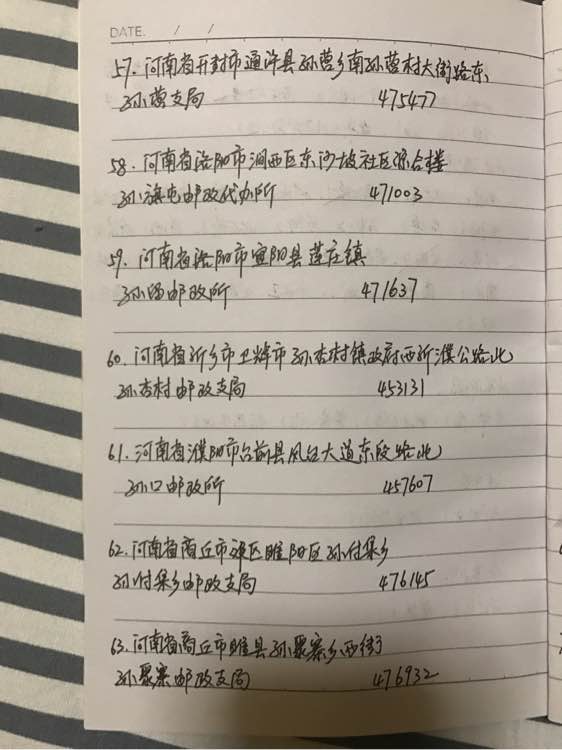 DATE. / /
57. 河南省开封市通许县孙营乡南孙营村大街路东
孙营支局 475477
58. 河南省洛阳市涧西区东沙坡社区综合楼
孙旗屯邮政代办所 471003
59. 河南省洛阳市宜阳县莲庄镇
孙留邮政所 471637
60. 河南省新乡市卫辉市孙杏村镇政府西新濮公路北
孙杏村邮政支局 453131
61. 河南省濮阳市台前县凤台大道东段路北
孙口邮政所 457607
62. 河南省商丘市 睢阳区孙付集乡
孙付集乡邮政支局 476145
63. 河南省商丘市睢县孙聚寨乡西街
孙聚寨邮政支局 476932